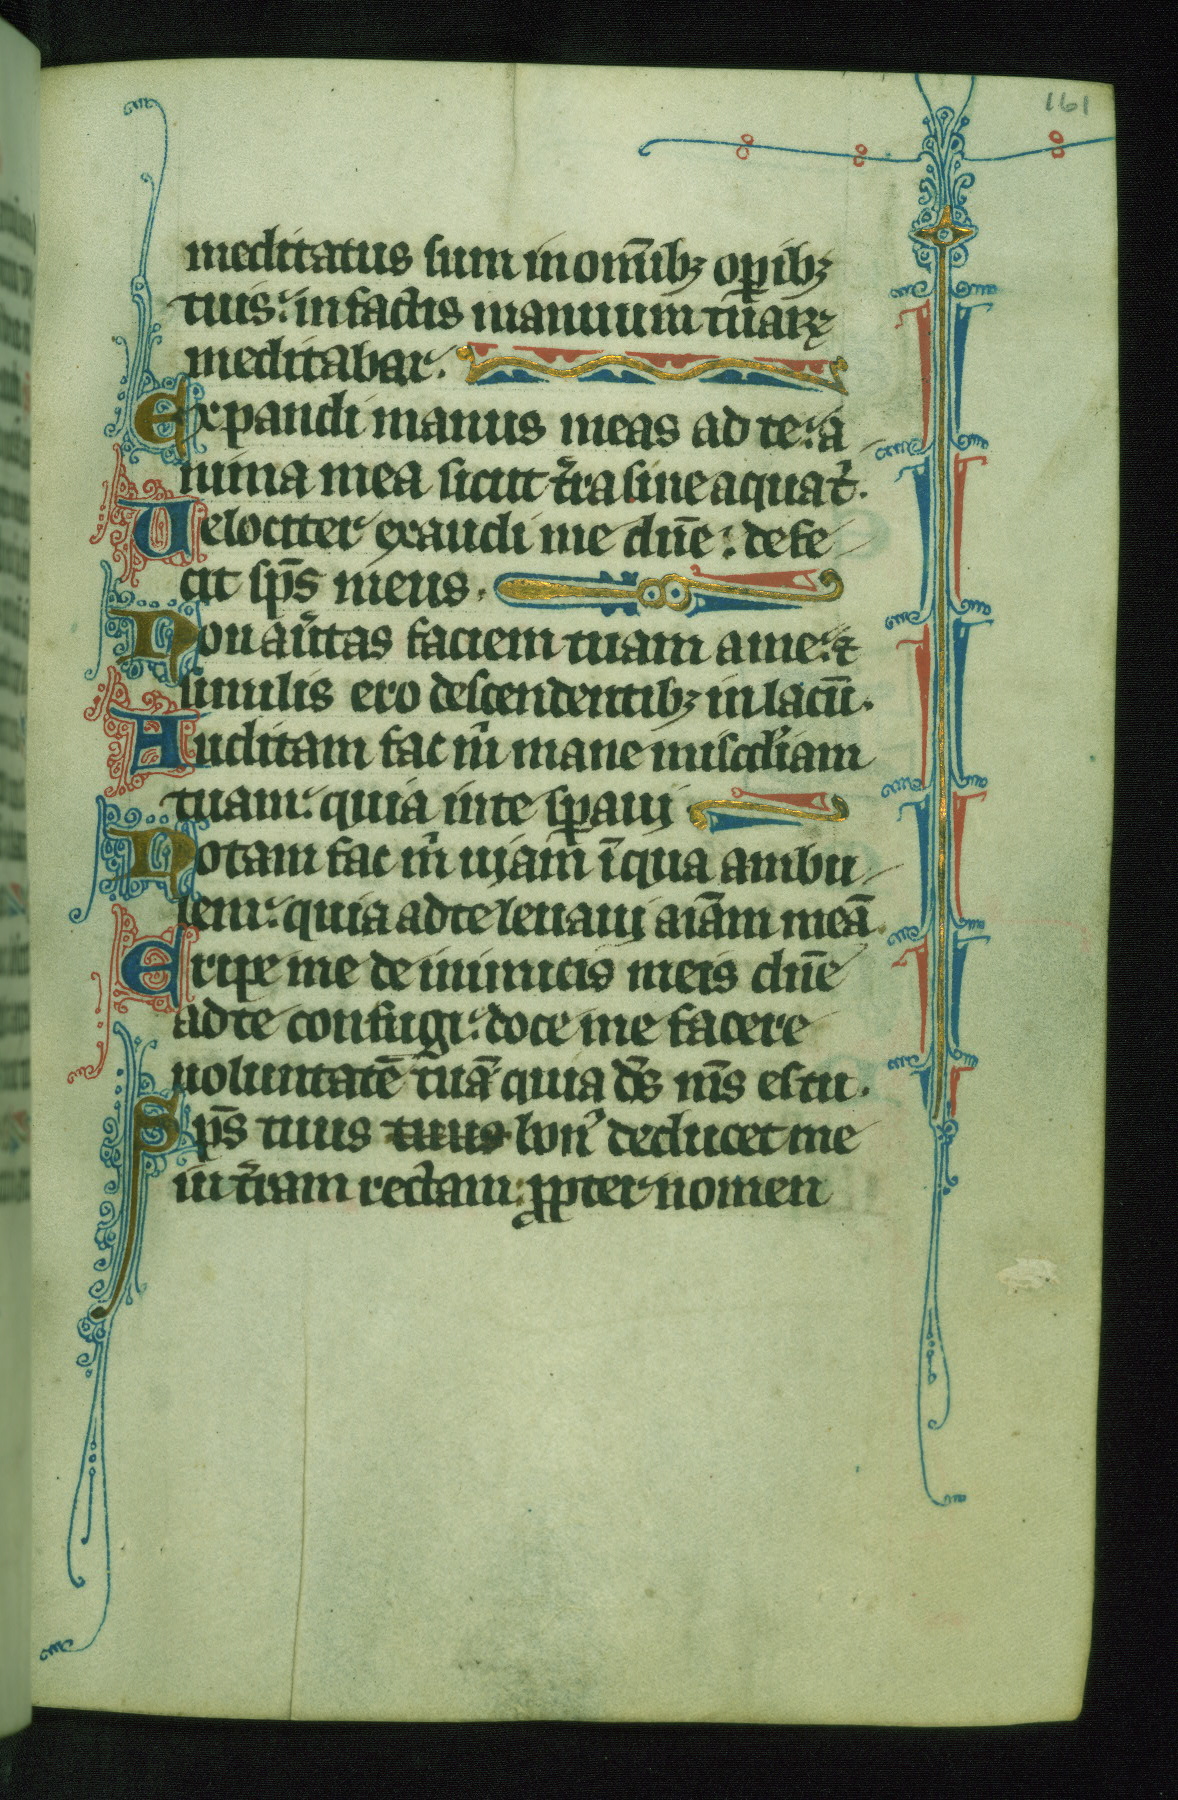 161
meditatus sum in om̄ibꝫ oꝑibꝫ
tuis: in factis manuum tuaꝝ
meditabar.
Expandi manus meas ad te: a
nima mea sicut t̉ra sine aqua t̉.
Velociter exaudi me dn̄e: defe
cit sp̄s meus.
Non au̾tas faciem tuam a me: ⁊
similis ero descendentibꝫ in lacū.
Auditam fac m̉ mane misc̾diam
tuam: quia in te sꝑaui
Notam fac m̉ uiam ī qua ambu
lem: quia ad te leuaui aīam meā.
Eripe me de inimicis meis dn̄e
ad te confugi: doce me facere
uoluntatē tuā quia ds̄ ms̄ es tu.
Sp̄s tuus tuus bon᾽ deducet me
in t̉ram rectam: ꝓpter nomen